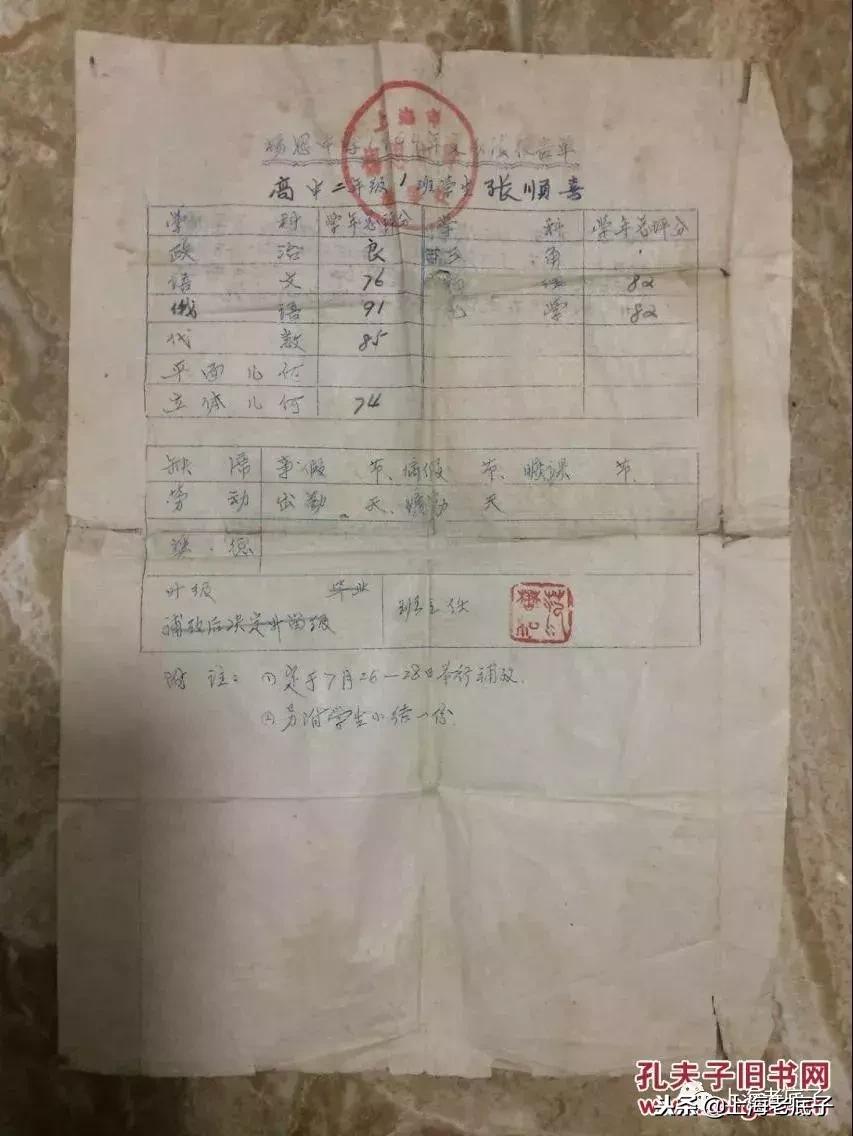 上海市
高中二年级1班学生张顺喜
学科 学年总评分 学科 学年总评分
政治 良 角
语文 76 82
俄语 91 化学 82
代数 85
平面几何
立体几何 74
缺席 事假 节、病假 节、旷课 节
劳动 出勤 天、缺勤 天
升级 毕业
补考后决定升留级
班主任
附注：(1)定于7月26—28日举行补考.
(2)另附学生小结一份.
孔夫子旧书网
头条@上海老底子